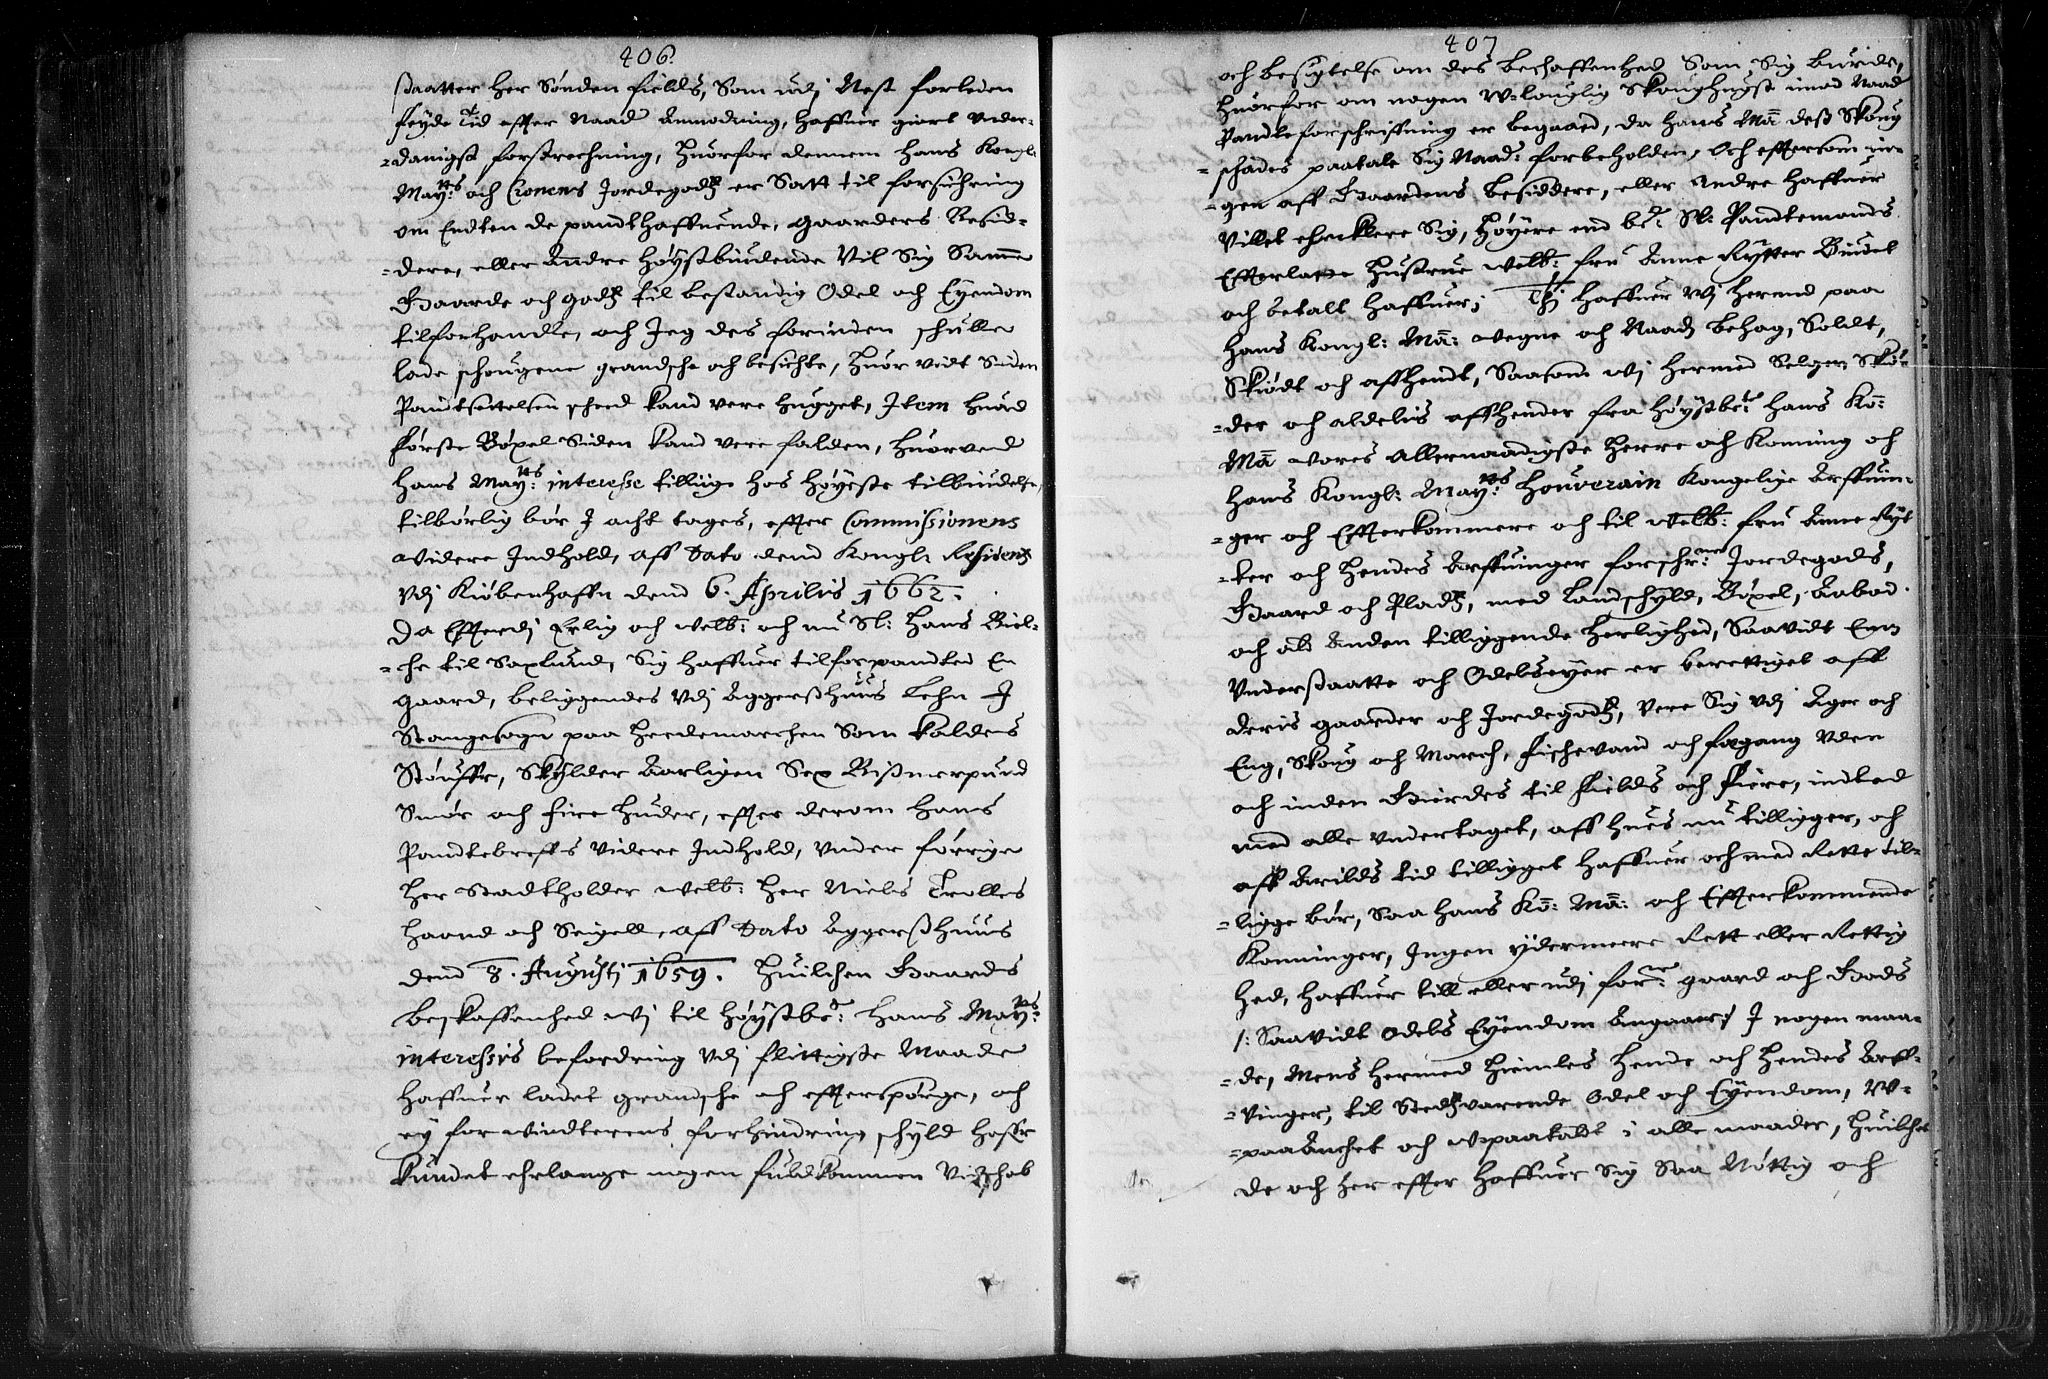 406.
ßaatter her Sønden fields, Som udj Nest forleden
feyde tid effter Naad anmodning, haffuer giort under-
-danigst forstrechning, huorfor dennem hans Kongl:
Mayts: och Cronens Jordegodtz er Satt til forsichring
om Endten de pandthaffuende, gaarders Besid-
-dere, eller Andre høystbiudende Vil Sig Samme
Gaarde och godtz til bestandig Odel och Eyendom
tilforhandle, och Jeg des forinden schulle
lade schougene grandsche och besichte, huor vidt Siden
Pandtsettelsen scheed kand vere hugget, Item huad
første Bøxel Siden kand vere falden, huorved
hans Mayts: interesse tillige hos høyeste tilbiudelse,
tilbørlig bør J acht tages, effter Commissionens
widere Indhold, aff Dato dend Kongl: Residents
Vdj Kiøbenhaffn dend 6. Aprilis 1662.
Da Effterdj Erlig och welb: och nu Sl: Hans Biel-
-che til Saxlund, Sig haffuer tilforpandted En
gaard, beliggendes Vdj Aggerßhuus Lehn J
Stangesogn paa Hedemarchen Som kaldes
Støuffr, Skylder Aarligen Sex Bißmerpund
Smør och fire huder, effter derom hans
Pandtebreffs videre Indhold, Under forrige
Her Stadtholder welb: Her Niels Trolles
Haand och Seigell, aff Dato Aggerßhuus
dend 8. Augustj 1659. Huilchen Gaards
beskaffenhed wj til høystbe:te hans Mayts:
interessis befordring Vdj flittigste Maade
haffuer ladet grandsche och effterspørge, och
ey for windterens forhindring schyld haffr
kundet erlange nogen fuldkommen Vidschab
407
och besigtelse om des beschaffenhed Som Sig burde,
huorfor om nogen W-louglig Skoughugst imod Naad
Pandteforschriffning er begaaed, da hans Ma deß Skoug
-schades paatale Sig Naad: forbeholden, Och effterßom in-
-gen aff Gaardens besiddere, eller Andre haffuer
Villet ehrklere Sig, høyere end be:te Sl: Pandtemands
Effterlatte Hustrue welb: fru Anne Rytter Budet
och betalt haffuer; Thj haffuer Wj hermed paa
Hans Kongl: Ma: wegne och Naad behag, Soldt,
Skiødt och affhendt, Saasom wj hermed Selger Skiø-
-der och aldelis affhender fra høystbe:te Hans Ko:
Ma wores allernaadigste Herre och Konning och
Hans Kongl: Mayts: Souverain Kongelige Arffuin-
-ger och Effterkommere och til welb: fru Anne Ryt
-ter och hendes Arffuinger forschr:ne Jordegods,
Gaard och Pladtz, med Landschyld, Bøxel, Aabod
och ald Anden tilliggende herlighed, Saavidt Een
Underßaatte och Odelseyer er berettiget aff
deris gaarder och Jordegodtz, Vere Sig Vdj Ager och
Eng, Skoug och March, fischevand och fægang Uden
och inden Gierdes til fields och fiere, indted
med alle undertaget, aff huis nu tilligger, och
aff Arilds tid tilligget haffuer och med Rette til-
-ligge bør, Saa hans Ko: Ma: och Effterkommende
Konninger, Ingen ydermeere Rett eller Rettig
hed, haffuer till eller udj for:ne gaard och Gods
/: Saavidt Odels Eyendom Angaaer :/ J nogen maa-
-de, Mens hermed hiemles hende och hendes Arff-
-vinger, til Stedtzvarende Odel och Eyendom, W-
-paaAnchet och Wpaatalt i alle maader, huilchet
de och her effter haffuer Sig Saa Nøttig och